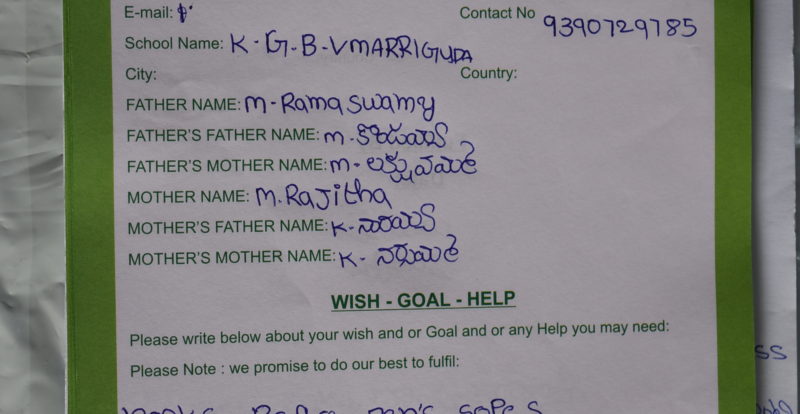 E-mail:
Contact No 9390729785
School Name: K-G-B-V MARRIGUDA
City: Country:
FATHER NAME: M-Ramaswamy
FATHER'S FATHER NAME: m-
FATHER'S MOTHER NAME: M-
MOTHER NAME: M.Rajitha
MOTHER'S FATHER NAME: K-
MOTHER'S MOTHER NAME: K-
WISH - GOAL - HELP
Please write below about your wish and or Goal and or any Help you may need:
Please Note : we promise to do our best to fulfil:
ss